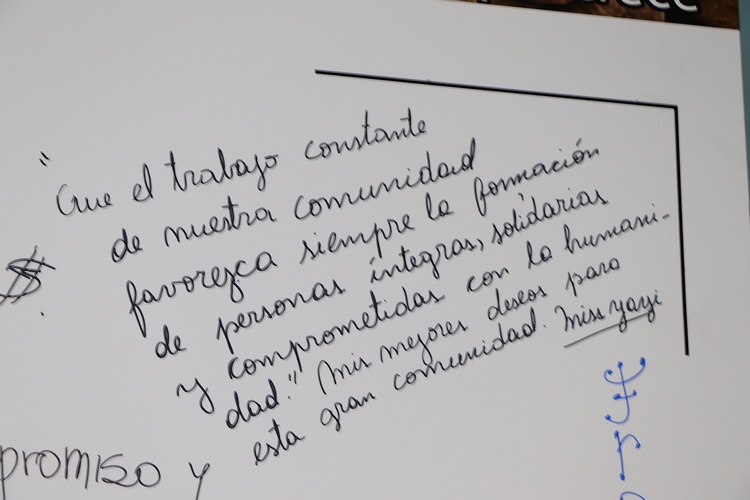 "Que el trabajo constante
de nuestra comunidad
favorezca siempre la formación
de personas íntegras, solidarias
y comprometidas con la humani-
dad." Mis mejores deseos para
esta gran comunidad. Miss yayi
promiso y